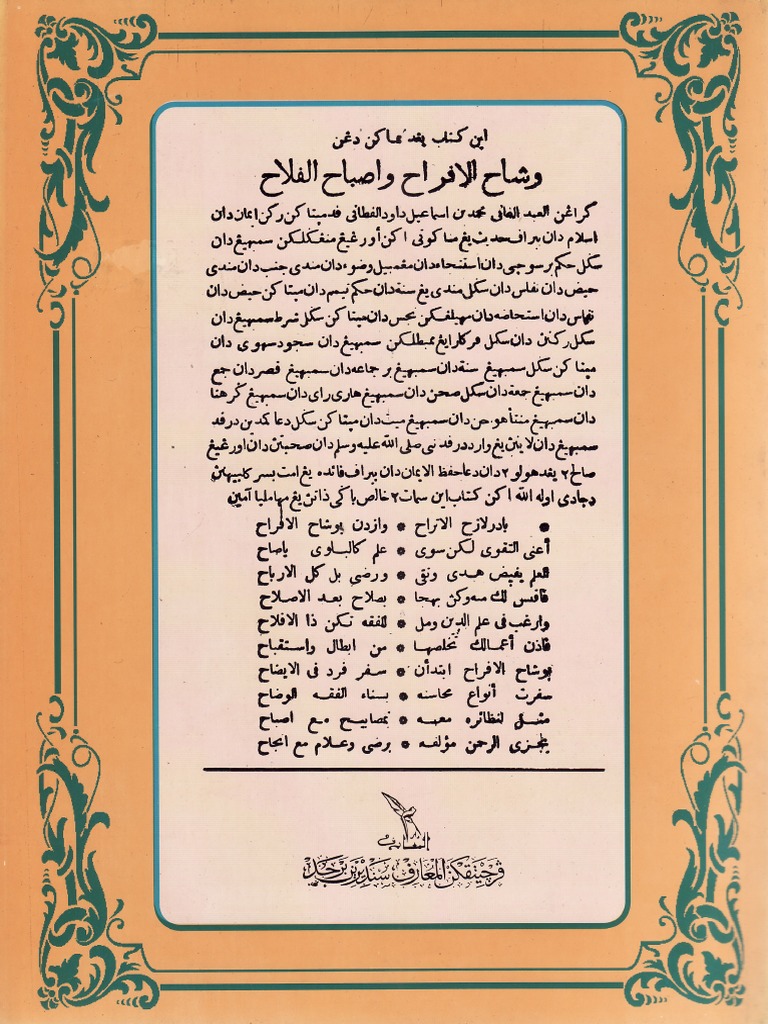 اين كتاب يڠد نماكن دڠن
وشاح الافراح واصباح الفلاح
كراڠن العبد الفاني محمد بن اسماعيل داود الفطاني ڤد مپتاكن ركن ايمان دان
اسلام دان ببراڤ حديث يڠ مناكوتي اكن أورڠ يڠ منڠݢلكن سمبهيڠ دان
سكل حكم برسوچي دان استنجاء دان مڠمبيل وضوء دان مندي جنب دان مندي
حيض دان نفاس دان سكل مندي يڠ سنة دان حكم تيمم دان مپتاكن حيض دان
نفاس دان استحاضه دان مهيلڠكن نجس دان مپتاكن سكل شرط سمبهيڠ دان
سكل ركنن دان سكل ڤركارا يڠ ممبطلكن سمبهيڠ دان سجود سهوي دان
مپتاكن سكل سمبهيڠ سنة دان سمبهيڠ برجماعه دان سمبهيڠ قصر دان جمع
دان سمبهيڠ جمعة دان سكل صحن دان سمبهيڠ هاري راي دان سمبهيڠ كرهنا
دان سمبهيڠ منتأ هوجن دان سمبهيڠ ميت دان مپتاكن سكل دعا كمدين درڤد
سمبهيڠ دان لاينن يڠ وارد درڤد نبي صلى الله عليه وسلم دان صحبتن دان اورڠ يڠ
صالح ٢ يڠدهولو ٢ دان دعا حفظ الايمان دان ببراڤ فائده يڠ امت بسر كلبيهنن
دجادي اوله الله اكن كتاب اين سمات ٢ خالص باكي ذاتن يڠ مها مليا آمين
* بادر لازح الاتراح * وازدن بوشاح الافراح
أعنى التقوى لكن سوى * علم كالباوى ياصاح
العلم يفيض هدى وتقى * ورضى بل كل الارباح
فاقبس لك منه وكن بهجا * بصلاح بعد الاصلاح
وارغب فى علم الدين ومل * للفقه تكن ذا الافلاح
فاذن أعمالك تخلصها * من ابطال واستقباح
بوشاح الافراح ابتدأن * سفر فرد فى الايضاح
سفرت أنواع محاسنه * بسناء الفقه الوضاح
مثل لنظائره معه * بمصابيح مع اصباح
يجزى الرحمن مؤلفه * برضى وعلام مع انجاح
المعارف
ڤرچيتقكن المعارف سنديرين برحد